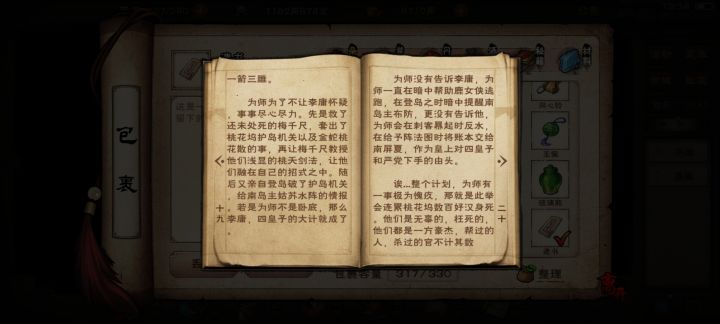 一箭三雕。
为师为了不让李庸怀疑
，事事尽心尽力。先是救了
还未处死的梅千尺，套出了
桃花坞护岛机关以及金蛇桃
花散的事，再让梅千尺教授
他们浅显的桃夭剑法，让他
们融在自己的招式之中。随
后又亲自登岛破了护岛机关
，给南岛主姑苏水阵的情报
。若是为师不是卧底，那么
李庸，四皇子的大计就成了
。
十九
为师没有告诉李庸，为
师一直在暗中帮助鹿女侠逃
跑，在登岛之时暗中提醒南
岛主布防，更没有告诉他，
为师会在刺客暴起时反水，
在给予阵法图时将账本交给
南屏夏，作为皇上对四皇子
和严党下手的由头。
诶...整个计划，为师有
一事极为愧疚，那就是此举
会连累桃花坞数百好汉身死
。他们是无辜的，枉死的，
他们都是一方豪杰，帮过的
人，杀过的官不计其数
二十
包裹
包裹容量
317/330
整理